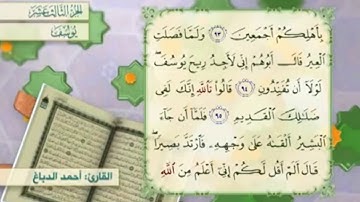 الجزء الثالث عشر
يوسف
بِأَهْلِكُمْ أَجْمَعِينَ ٩٣ وَلَمَّا فَصَلَتِ
الْعِيرُ قَالَ أَبُوهُمْ إِنِّي لَأَجِدُ رِيحَ يُوسُفَ
لَوْلَا أَن تُفَنِّدُونِ ٩٤ قَالُوا تَاللَّهِ إِنَّكَ لَفِي
ضَلَالِكَ الْقَدِيمِ ٩٥ فَلَمَّا أَن جَاءَ
الْبَشِيرُ أَلْقَاهُ عَلَى وَجْهِهِ فَارْتَدَّ بَصِيرًا
قَالَ أَلَمْ أَقُل لَّكُمْ إِنِّي أَعْلَمُ مِنَ اللَّهِ
القارئ: أحمد الدباغ